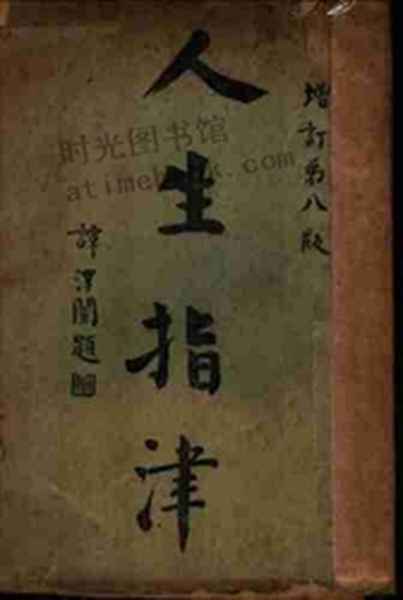 增訂第八版
人生指津
譚澤闓題
时光图书馆
atimebook.com